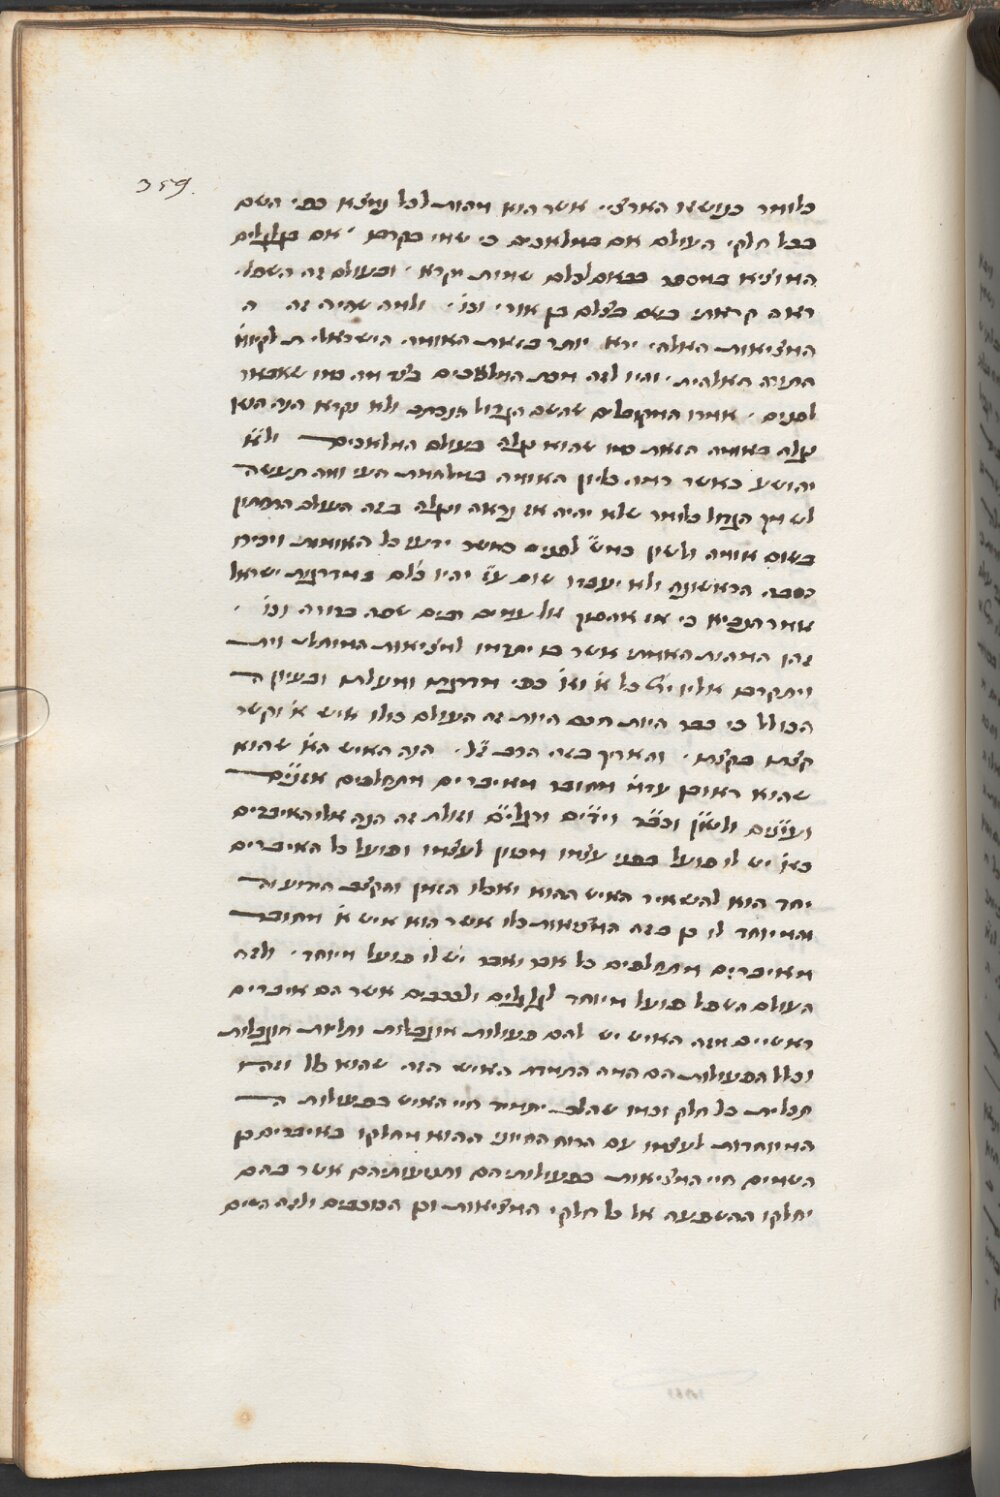 359.
כלומר כנושאו הארציי אשר הוא מהות לכל נמצא כפי השם
בכל חלקי העולם אם במלאכים כי שמי בקרבו אם בגלגלים
המוציא במספר צבאם לכלם שמות יקרא ובעולם זה השפל
ראה קראתי בשם בצלאל בן אורי וכו' ולמה שהיה זה ה
המציאות האלהי ירא יותר בזאת האומה הישראלית לקיום
התורה האלהית והיו לזה מכת המלאכים בצד מה כמו שאבאר
לפנים אמרו המקובלים שהשם הגדול הנכתב ולא נקרא הנה הוא
נגלה באומה הזאת כמו שהוא נגלה בעולם המלאכים ולז"א
יהושע כאשר ראה כליון האומה במלחמת העי ומה תעשה
לשמך הגדול כלומר שלא יהיה אז נראה ונגלה בזה העולם התחתון
בשום אומה ולשון כמ"ש לפנים כאשר ידעו כל האומות ויכירו
הסבה הראשונה ולא יעבדו שום ע"ז יהיו כלם במדרגת ישראל
אמר הנביא כי אז אהפוך אל עמים כלם שפה ברורה וכו'
זהו המהות האמתי אשר בו יתדמו למציאות המוחלט וית'
ויתקרבו אליו ית' כל א' וא' כפי מדרגתו ומעלתו ובעיון ה
הכולל כי כבר היות חכם היות זה העולם כולו איש א' וקשר
קצתו בקצתו והאריך בזה הרב ז"ל הנה האיש הא' שהוא
שהוא ראובן עד"מ מחובר מאיברים מתחלפים אזנים
ועינים ולשון וכבד וידים ורגלים וזולת זה הנה אלו האיברים
כאן יש לו פועל בפני עצמו מכוון לעצמו ופועל כל האיברים
יחד הוא להשאיר האיש ההוא ואכלו הזמן והקצב הידוע
והמיוחד לו כן בזה המציאות כלו אשר הוא איש א' מחובר
מאיברים מתחלפים כל אבר ואבר יש לו פועל מיוחד ולזה
העולם השפל פועל מיוחד לגלגלים ולכוכבים אשר הם איברים
ראשיים מזה האיש יש להם פעולות מוגבלות ותליות מוגבלות
וכלל הפעולות הם המה התמדת האיש הזה שהוא כל וזהו
תכלית כל חלק וכמו שהלב יתמיד חיי האיש בפעולות ה
המיוחדות לעצמו עם הרוח החיוני ההוא מחלקו באיברים כן
השמים חיי המציאות בפעולותיהם ותנועותיהם אשר בהם
יחלקו ההשפעה אל כל חלקי המציאות וכן הכוכבים ולזה השים